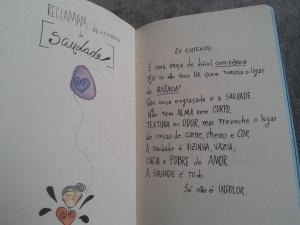 RECLAMAM da existência
da
[saudade]
EU ENTENDO.
É uma moça de difícil convivência
Mas se não fosse ela, quem tomaria o lugar
da AUSÊNCIA?
Que coisa engraçada é a SAUDADE
Não tem ALMA nem CORPO,
TEXTURA ou ODOR, mas preenche o lugar
de coisas de carne, cheiro e COR.
A saudade é VIZINHA, VAZIA,
CHEIA e POBRE de AMOR.
A SAUDADE É TUDO.
Só não é INDOLOR.